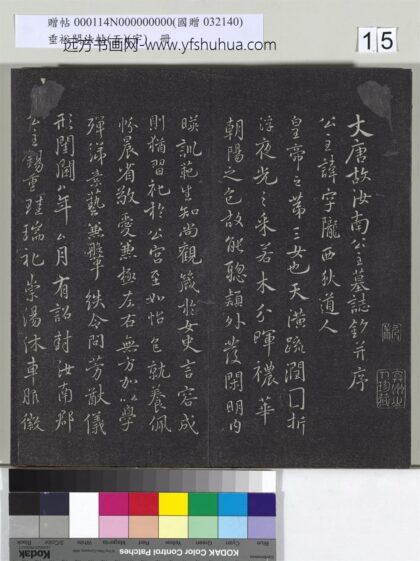 贈帖 000114N000000000(國贈 032140)
远方书画网-www.yfshuhua.com
15
大唐故汝南公主墓誌銘并序
公主諱字隴西狄道人
皇帝之第三女也天潢疏潤圓折
浮夜光之采若木分暉穠華
朝陽之色故能聰穎外發閑明內
暎訓範生知尚觀箴於女史言容成
則猶習礼於公宮至如怡色就養佩
帉晨省敬愛兼極左右無方加以學
殫綈素藝兼鞶紩令問芳猷儀
形閨閫年月有詔封汝南郡
公主錫重珪瑞礼崇湯沐車服徽
KODAK Color Control Patches
Blue
Cyan
Green
Yellow
Red
Magenta
White
3/Color
Black